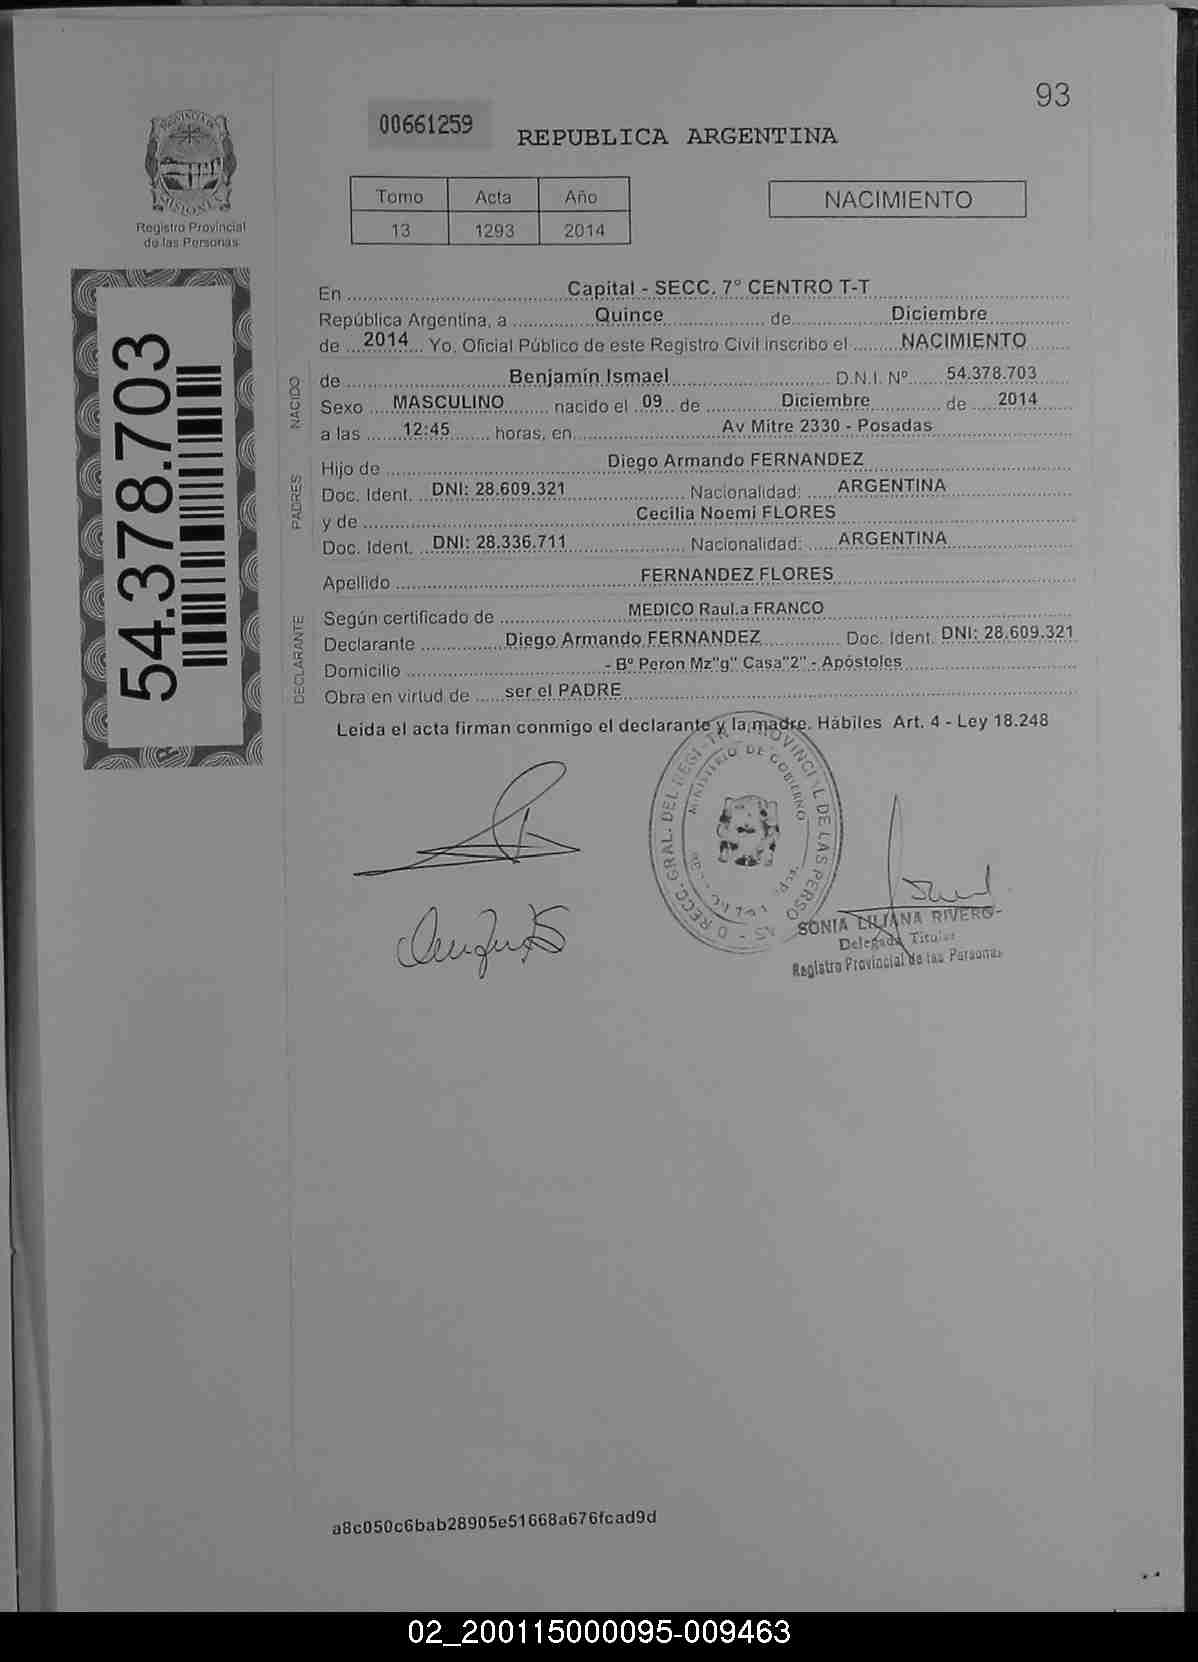 93
00661259
REPUBLICA ARGENTINA
Tomo Acta Año
13 1293 2014
NACIMIENTO
PROVINCIA DE
MISIONES
Registro Provincial
de las Personas
54.378.703
En Capital - SECC. 7° CENTRO T-T
República Argentina, a Quince de Diciembre
de 2014 Yo, Oficial Público de este Registro Civil inscribo el NACIMIENTO
NACIDO
de Benjamín Ismael D.N.I. Nº 54.378.703
Sexo MASCULINO nacido el 09 de Diciembre de 2014
a las 12:45 horas, en Av Mitre 2330 - Posadas
PADRES
Hijo de Diego Armando FERNANDEZ
Doc. Ident. DNI: 28.609.321 Nacionalidad: ARGENTINA
y de Cecilia Noemi FLORES
Doc. Ident. DNI: 28.336.711 Nacionalidad: ARGENTINA
Apellido FERNANDEZ FLORES
DECLARANTE
Según certificado de MEDICO Raul.a FRANCO
Declarante Diego Armando FERNANDEZ Doc. Ident. DNI: 28.609.321
Domicilio - Bº Peron Mz"g" Casa"2" - Apóstoles
Obra en virtud de ser el PADRE
Leida el acta firman conmigo el declarante y la madre. Hábiles Art. 4 - Ley 18.248
MINISTERIO DE GOBIERNO
SONIA LILIANA RIVERO
Delegada Titular
Registro Provincial de las Personas
a8c050c6bab28905e51668a676fcad9d
02_200115000095-009463